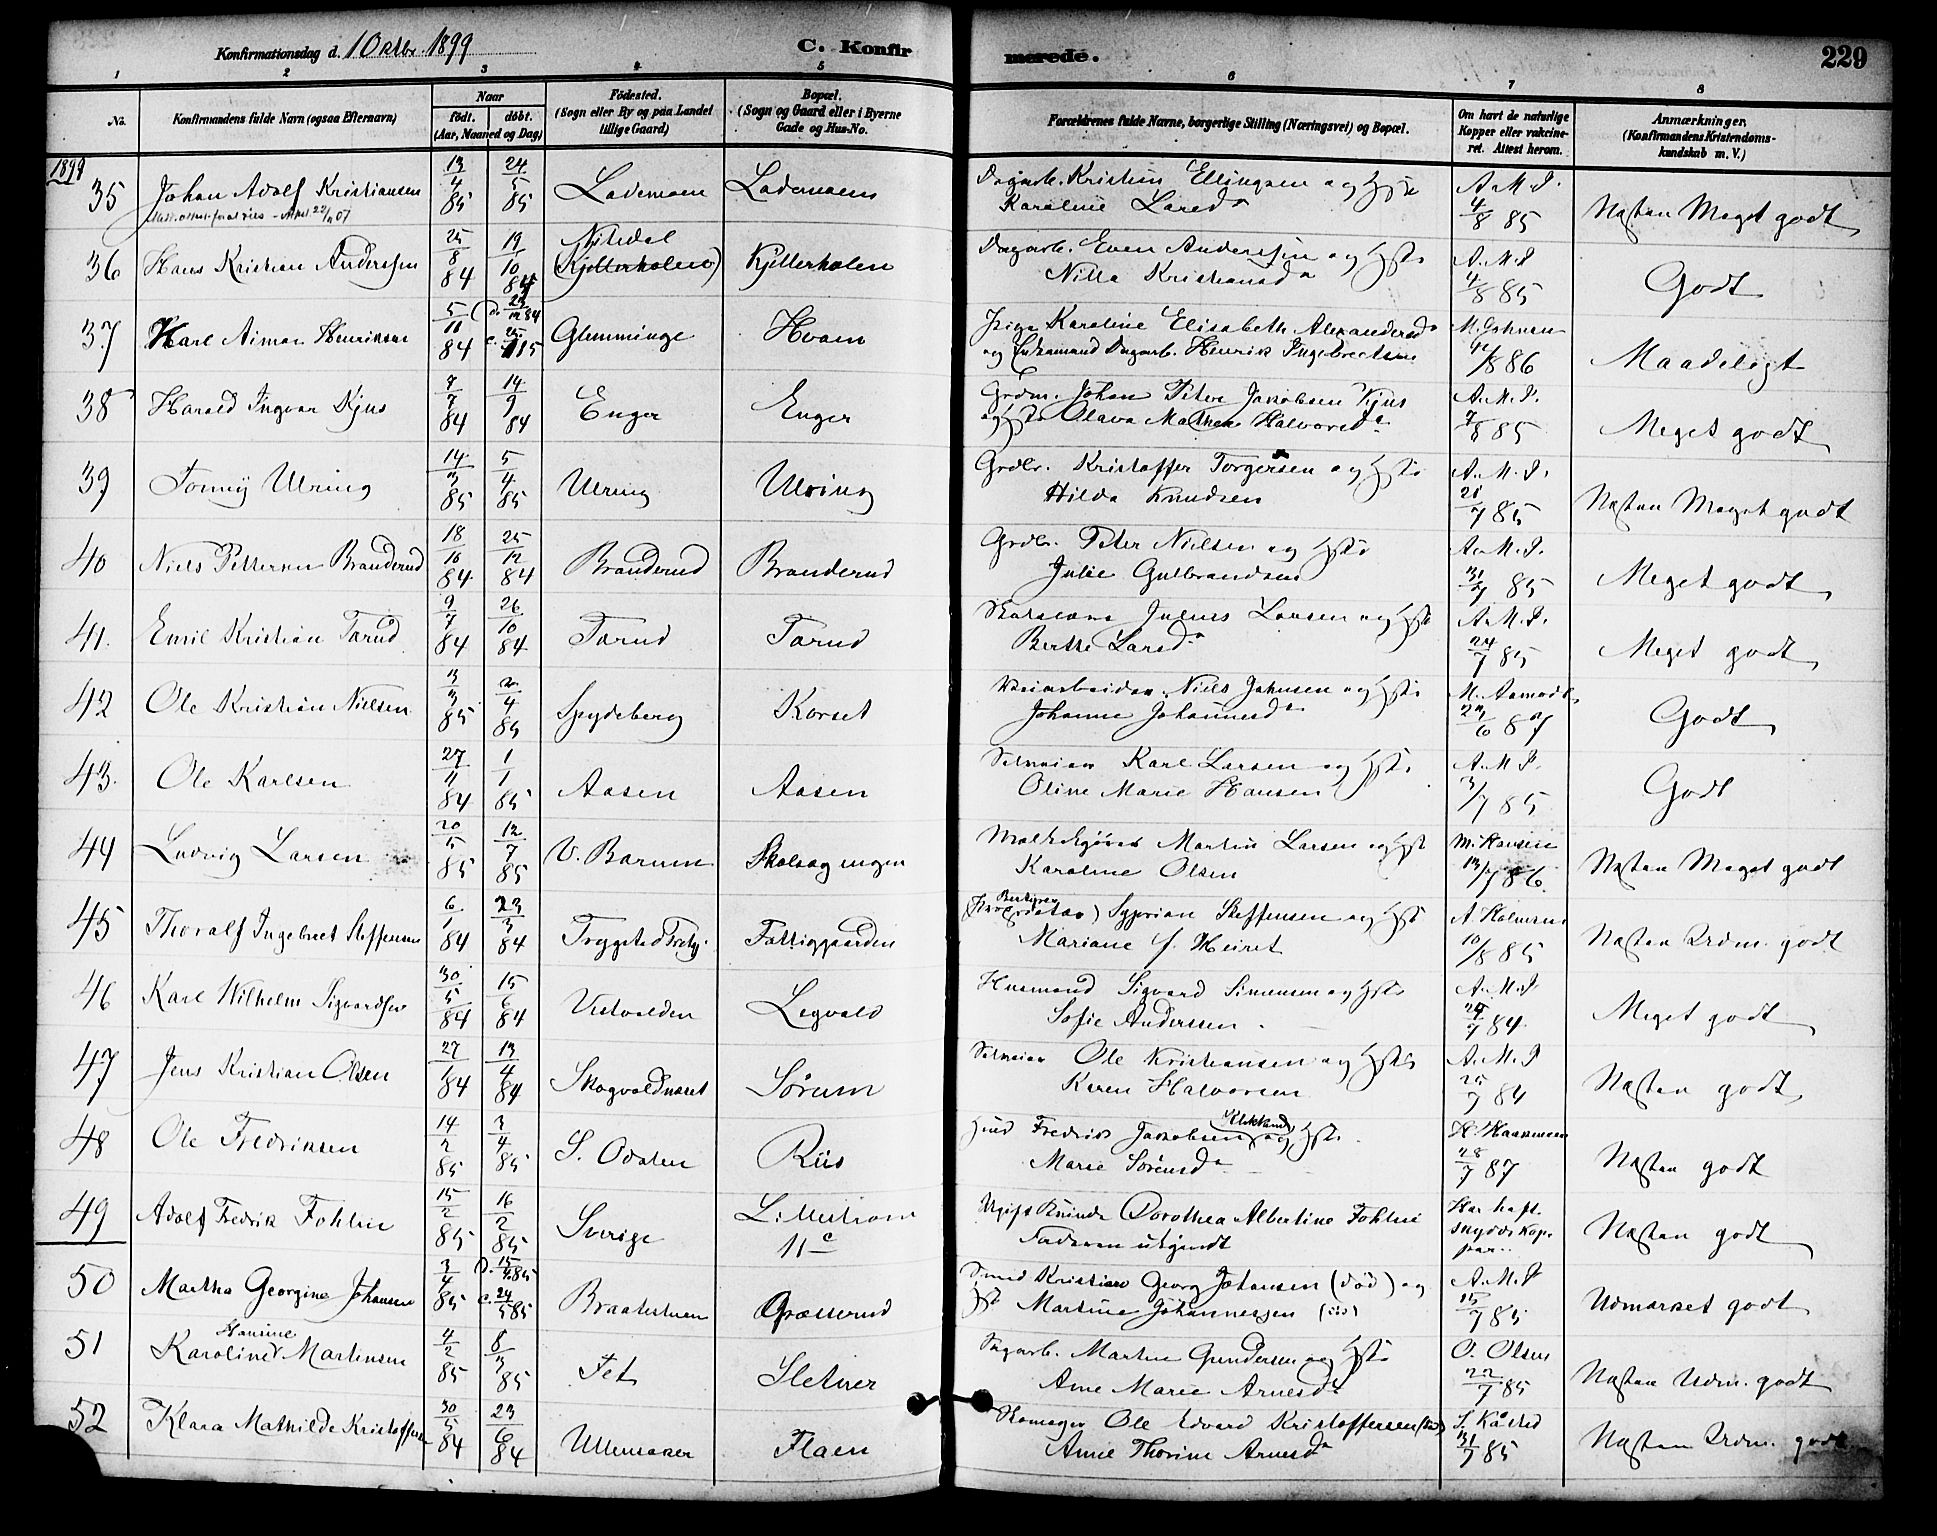 Konfirmationsdag d. 1 Oktbr. 1899 C. Konfirmerede. 229
1 2 3 4 5 6 7 8
No. Konfirmandens fulde Navn (ogsaa Efternavn) Naar født. døbt. (Aar, Maaned og Dag) Fødested. (Sogn eller By og paa Landet tillige Gaard) Bopæl. (Sogn og Gaard eller i Byerne Gade og Hus-No. Forældrenes fulde Navne, borgerlige Stilling (Næringsvei) og Bopæl. Om havt de naturlige Kopper eller vakcineret. Attest herom. Anmærkninger, (Konfirmandens Kristendomskundskab m. V.)
1899
35 Johan Adolf Kristiansen 13/4 85 24/5 85 Lademoen Lademoen Dagarb. Kristian Ellingsen og Hstr Karoline Larsd. A.M.I. 4/8 85 Næsten Meget godt
36 Hans Kristian Andersen 25/8 84 19/10 84 Nitedal (Kjellerholen) Kjellerholen Dagarb. Even Andersen og Hstr Nilla Kristiansd. A.M.I. 4/8 85 Godt
37 Karl Aimar Henriksen 5/11 84 Glemminge Hvam Pige Karoline Elisabeth Alexandersd. og Enkemand Dagarb. Henrik Ingebretsen M. Johnsen /8 86 Maadeligt
38 Harald Ingvar Kjus 7/7 84 14/9 84 Enger Enger Grdm. Johan Peter Jakobsen Kjus og Hstr Olava Mathea Halvorsd. A.M.I. 7/8 85 Meget godt
39 Tonny Ulring 14/3 85 5/4 85 Ulring Ulring Grdbr. Kristoffer Torgersen og Hstr Hilda Knudsen A.M.I. 21/7 85 Næsten Meget godt
40 Niels Petterson Branderud 18/10 84 25/12 84 Branderud Branderud Grdbr. Peter Nielsen og Hstr Julie Gulbrandsen A.M.I. 31/7 85 Meget godt
41. Emil Kristian Tarud 9/7 84 26/10 84 Tarud Tarud Julius Larsen og Hstr Berthe Larsd. A.M.I. 24/7 85 Meget godt
42 Ole Kristian Nielsen 3/3 85 2/4 85 Spydeberg Korset Veiarbeider Niels Johnsen og Hstr Johanne Johannesd. M. Aamodt 22/6 87 Godt
43. Ole Karlsen 27/11 84 1/1 85 Aasen Aasen Selveier Karl Larsen og Hstr Oline Marie Hansen A.M.I. 3/7 85 Godt
44 Ludvig Larsen 20/5 85 12/7 85 V. Bærum Martin Larsen og Hstr Karoline Olsen M. Hansen 13/7 86. Næsten Meget godt
45 Thoralf Ingebret Steffensen 6/1 84 23/3 84 Fattiggaarden Syprian Steffensen og Hstr Mariane f. Heiret A. Halvorsen 10/8 85 Næsten Udm. godt
46 Karl Wilhelm Sigvardsen 30/5 84 15/6 84 Vestvolden Legvold Husmand Sigvard Simensen og Hstr Sofie Andersen A.M.I. 29/7 84. Meget godt
47 Jens Kristian Olsen 27/1 84 13/4 84 Skogvoldnæset Sørum Selveier Ole Kristiansen og Hstr Karen Halvorsen A.M.I. 25/7 84 Næsten godt
48 Ole Fredriksen 14/2 85 3/4 85 S. Odalen Riis Fredrik Jakobsen og Hstr Marie Sørensd. H. Haakonsen 28/7 87 Næsten godt
49 Adolf Fredrik Fohlin 15/2 85 16/2 85 Sverige Lillestrøm 11c Ugift Kvinde Dorothea Albertine Fohlin Faderen ukjendt Har haft Næsten godt
50 Martha Georgine Johansen 3/4 85 d. 15/4 85 c. 24/5 85 Braatestuen Græsserud Smed Kristian Georg Johansen (død) og Hstr Martine Johannessen (død) A.M.I. 15/7 85 Udmærket godt
51 Karoline Hansine Martinsen 4/2 85 8/3 85 Fet Sletner Sagarb. Martin Gundersen og Hstr Anne Marie Arnesd. O. Olsen 22/7 85 Næsten Udm. godt
52 Klara Mathilde Kristoffersen 30/5 84 23/6 84 Ullensaker Flaen Skomager Ole Edvard Kristoffersen Anne Thorine Arnesd. 31/7 85 Næsten Udm. godt